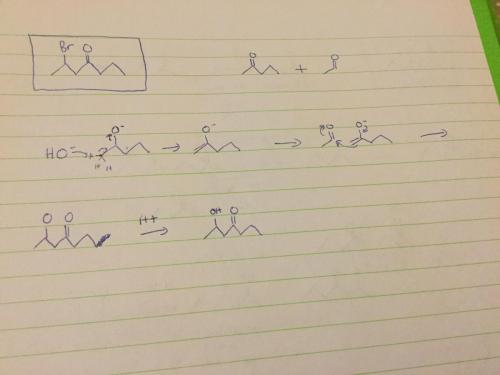 Br O O + O
HO⁻ O⁻ O⁻ O O⁻
H H
O O H+ OH O